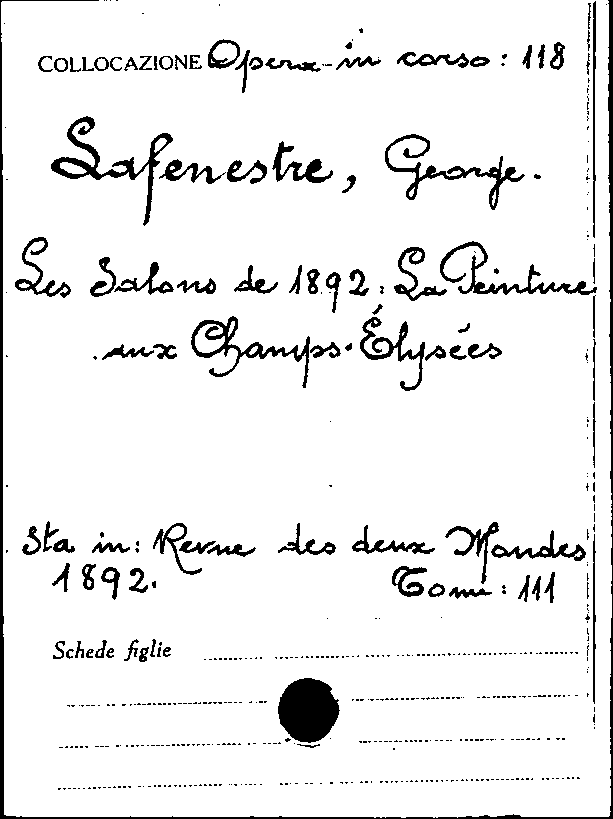 COLLOCAZIONE Opera in corso: 118
Lafenestre, George.
Les Salons de 1892: La Peinture
aux Champs-Élysées
Sta in: Revue des deux Mondes
1892. Tomi: 111
Schede figlie